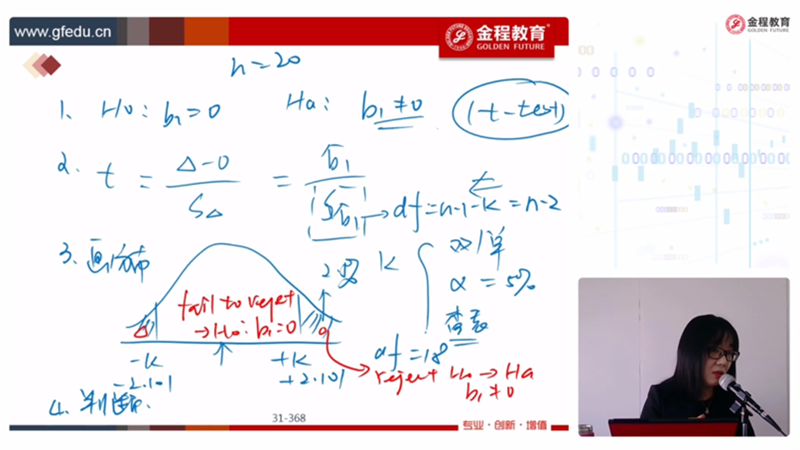 www.gfedu.cn
金程教育
GOLDEN FUTURE
金程教育
GOLDEN FUTURE
n=20
1. H0: b1=0 Ha: b1≠0 (t-test)
2. t = Δ-0 / SΔ = b̂1 / Sb̂1 → df=n-1-k=n-2
3. 画分布
2.5%
k
双/单
α = 5%
查表
df=18
fail to reject
→H0: b1=0
-k +k
-2.101 +2.101
reject H0 → Ha
b1≠0
4. 判断.
31-368
专业·创新·增值